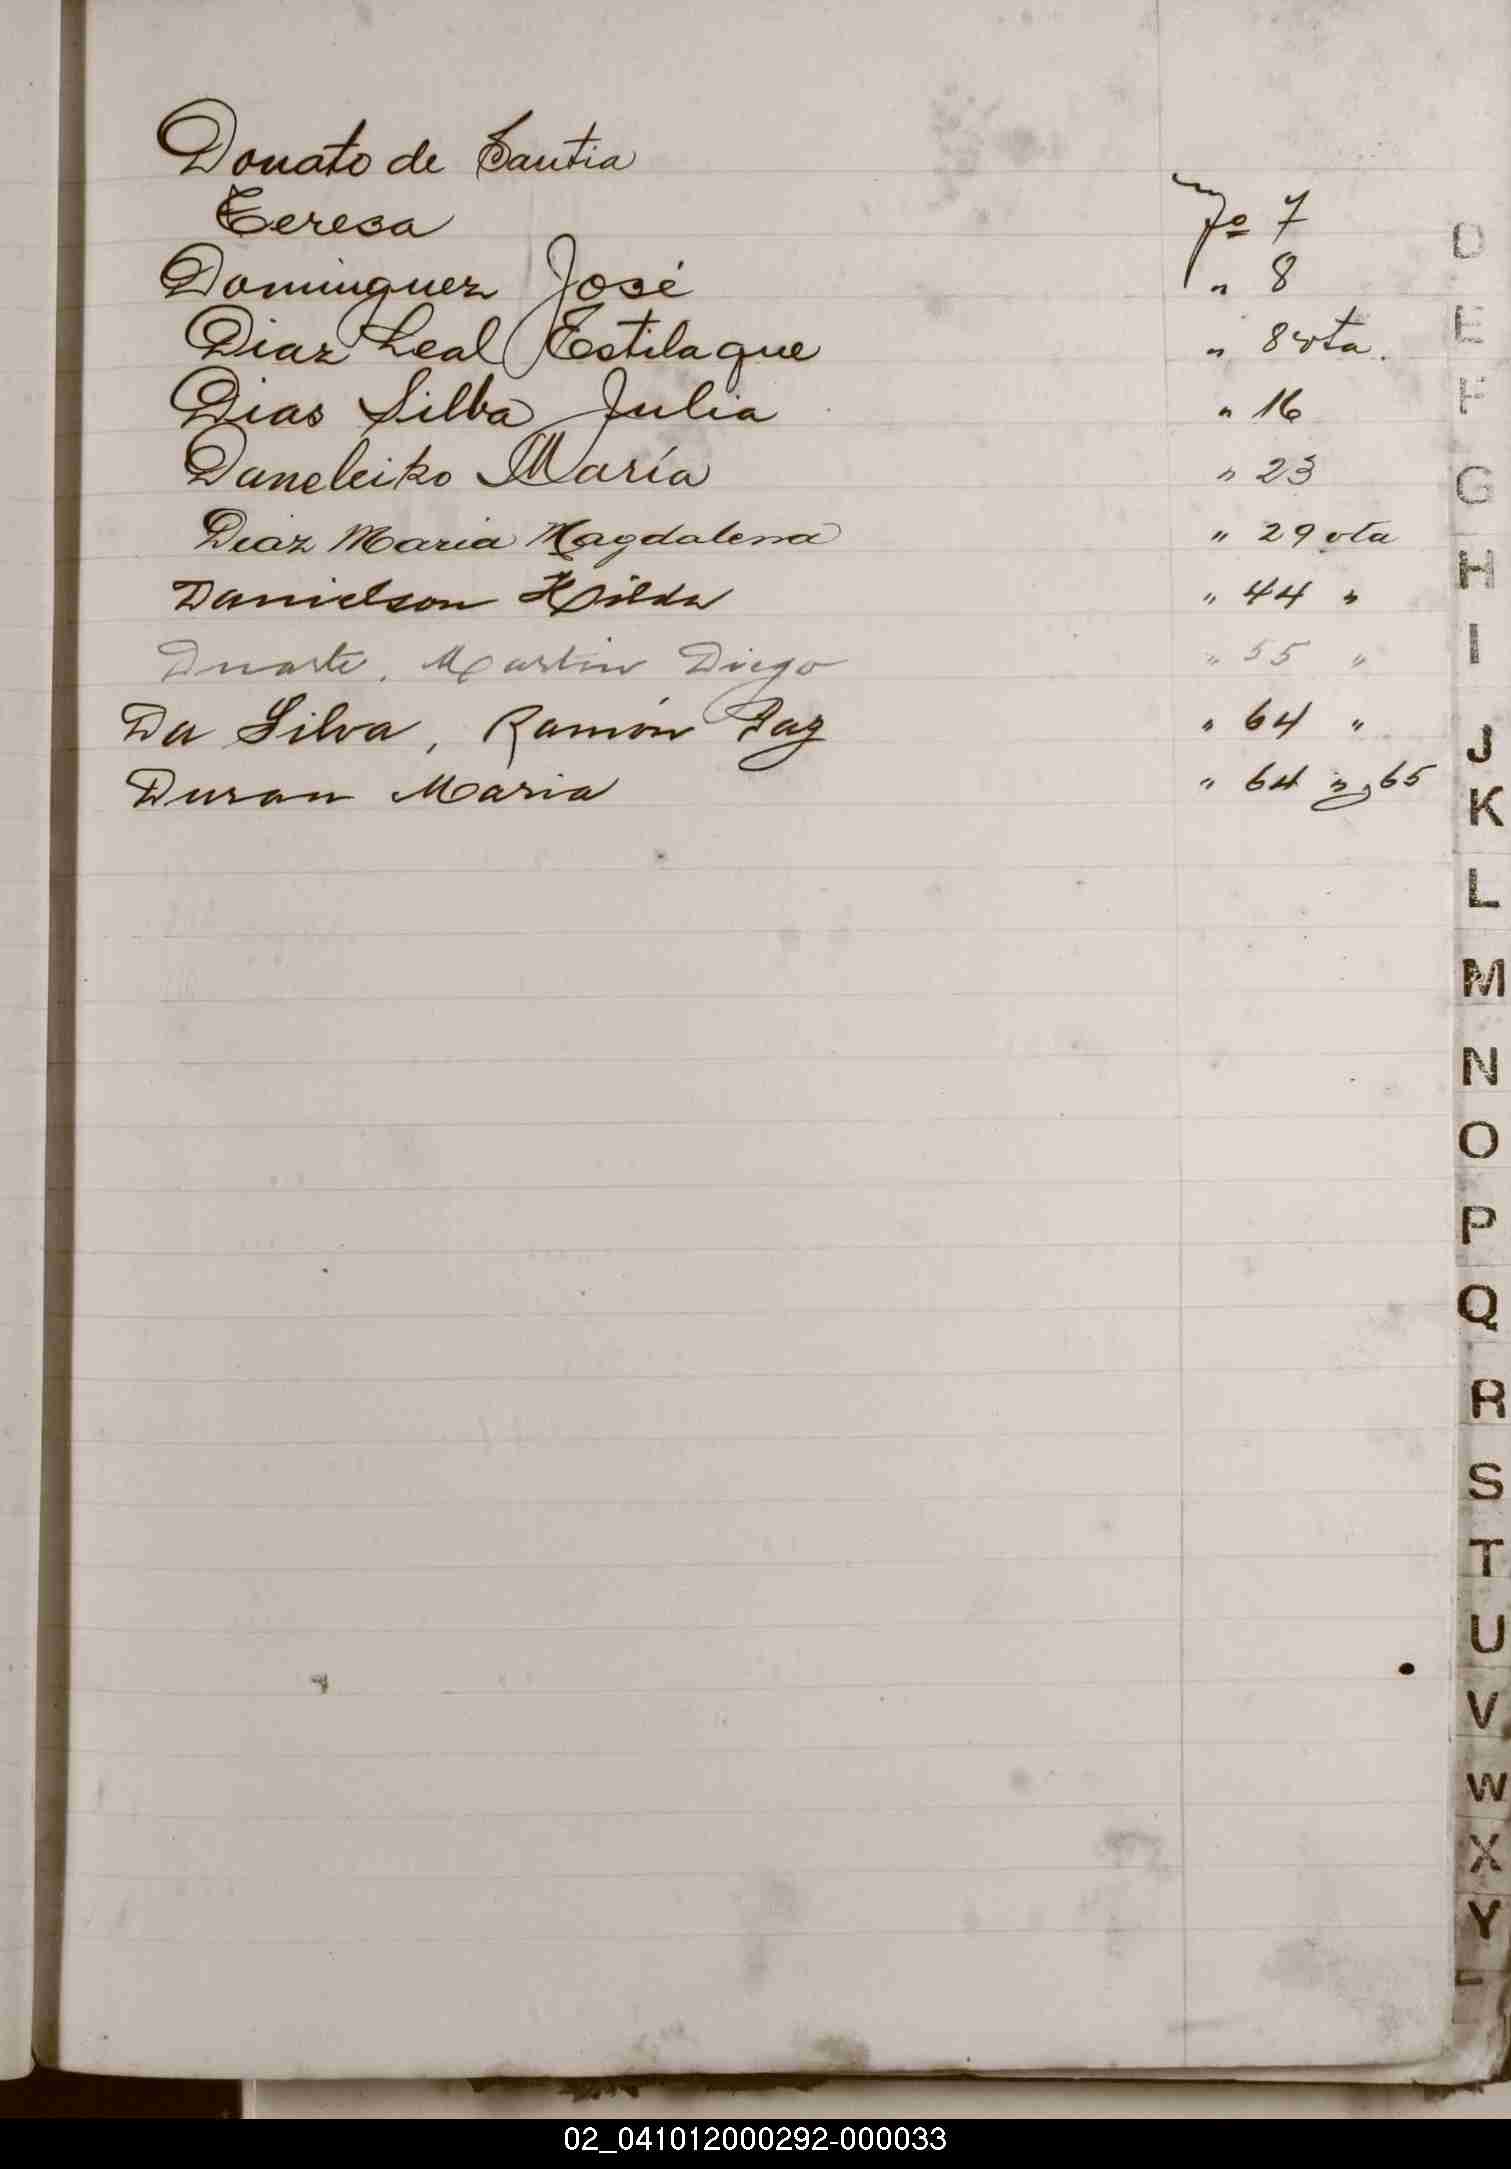 Donato de Santia
Teresa fo 7
Dominguez José " 8
Diaz Leal Estilaque " 8 vta.
Dias Silba Julia " 16
Daneleiko María " 23
Diaz Maria Magdalena " 29 vta
Danielson Hilda " 44 "
Duarte, Martin Diego " 55 "
Da Silva, Ramón Paz " 64 "
Duran Maria " 64 " y 65
D
E
F
G
H
I
J
K
L
M
N
O
P
Q
R
S
T
U
V
W
X
Y
02_041012000292-000033